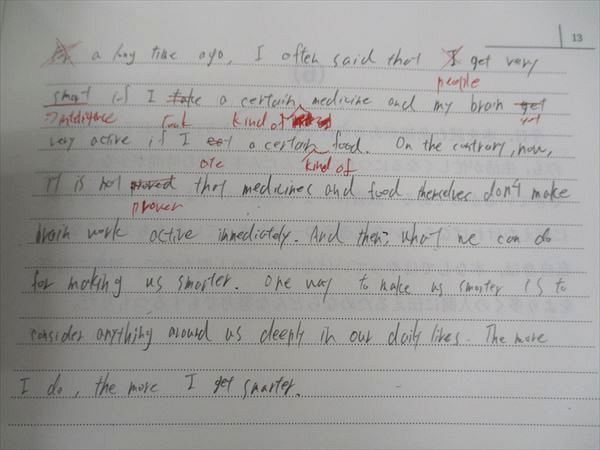 13
a long time ago, I often said that I get very
people
smart if I take a certain medicine and my brain get
⇒intelligence took kind of got
very active if I eat a certain food. On the contrary, now,
ate kind of
it is not proved that medicines and food themselves don't make
proven
brain work active immediately. And then, what we can do
for making us smarter. One way to make us smarter is to
consider anything around us deeply in our daily lives. The more
I do, the more I get smarter.